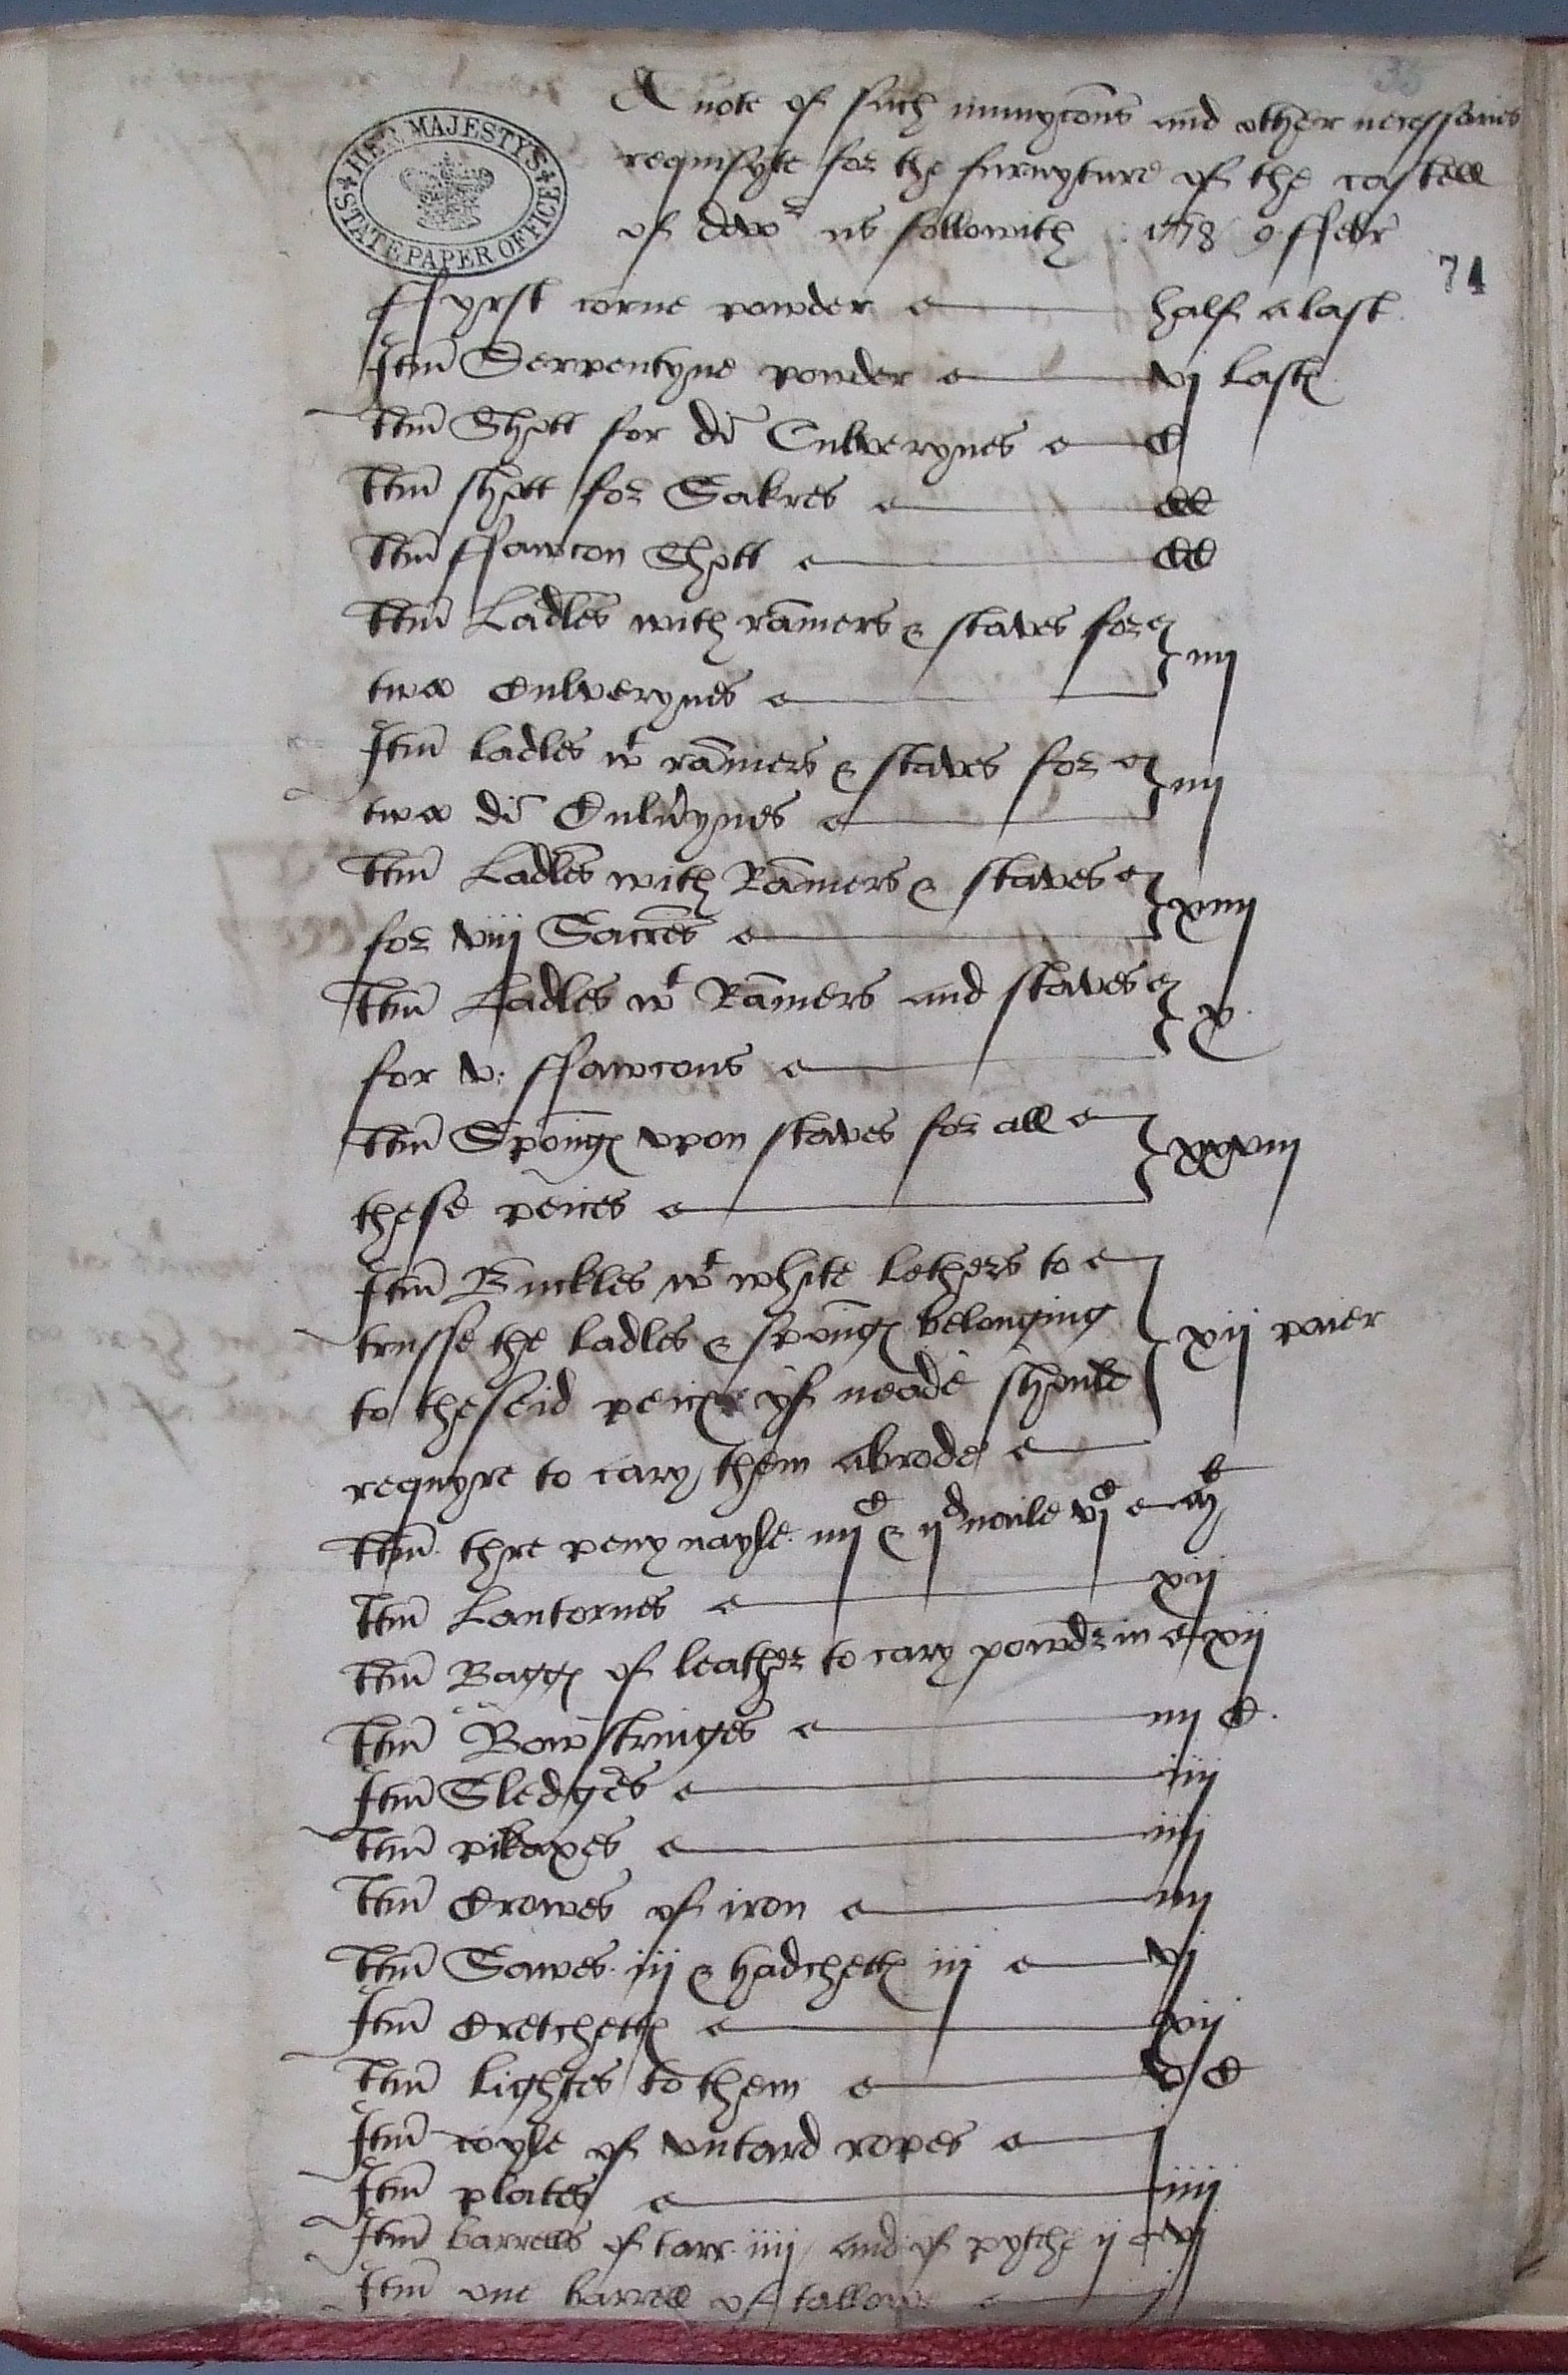 A note of such munycōns and other necessaries
requisyte for the furnyture of the castell
of dovr as followith 1578 9 ffebr
74
HER MAJESTY'S STATE PAPER OFFICE
ffyrst corne powder half a last
Itm̄ Serpentyne powder vj last
Itm̄ Shott for di Culverynes C
Itm̄ shott for Sakres CC
Itm̄ ffawcon Shott CC
Itm̄ Ladles with rāmers & staves for
two Culverynes iiij
Itm̄ ladles wt rāmers & staves for
two di Culv̄ynes iiij
Itm̄ Ladles with Rāmers & staves
for viij Sacres xiiij
Itm̄ Ladles wt Rāmers and staves
for v. ffawcons x
Itm̄ Spong upon staves for all
these peices xxviij
Itm̄ Buckles wt white lethers to
trusse the ladles & spong belonging
to theseid peices yf neade should
requyre to cary them abrode xij paier
Itm̄ thre peny nayle iiijC & ijd naile vjC
Itm̄ Lantornes xij
Itm̄ Bagg of leather to cary powdr in xij
Itm̄ Bowstringes iiij C
Itm̄ Sledges iiij
Itm̄ pikaxes iiij
Itm̄ Crowes of iron iiij
Itm̄ Sawes iij & hadchett iij vj
Itm̄ Cretchett xij
Itm̄ lightes to them v C
Itm̄ coyle of untard ropes j
Itm̄ plates iiij
Itm̄ barrells of tarr iiij and of pytche ij vj
Itm̄ one barrell of tallow j